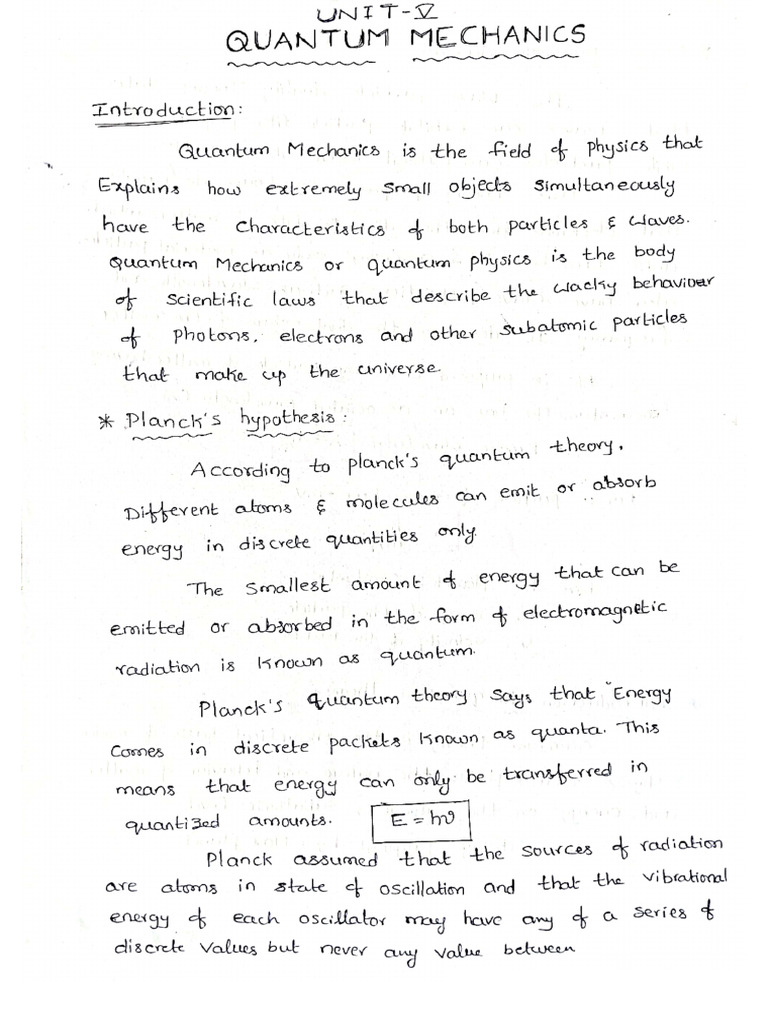 UNIT-V
QUANTUM MECHANICS
Introduction:
Quantum Mechanics is the field of physics that
Explains how extremely small objects simultaneously
have the characteristics of both particles & waves.
Quantum Mechanics or quantum physics is the body
of scientific laws that describe the wacky behaviour
of photons, electrons and other subatomic particles
that make up the universe
* Planck's hypothesis:
According to planck's quantum theory,
Different atoms & molecules can emit or absorb
energy in discrete quantities only.
The smallest amount of energy that can be
emitted or absorbed in the form of electromagnetic
radiation is known as quantum.
Planck's quantum theory says that "Energy
comes in discrete packets known as quanta. This
means that energy can only be transferred in
quantized amounts. E = hν
Planck assumed that the sources of radiation
are atoms in state of oscillation and that the vibrational
energy of each oscillator may have any of a series of
discrete values but never any value between